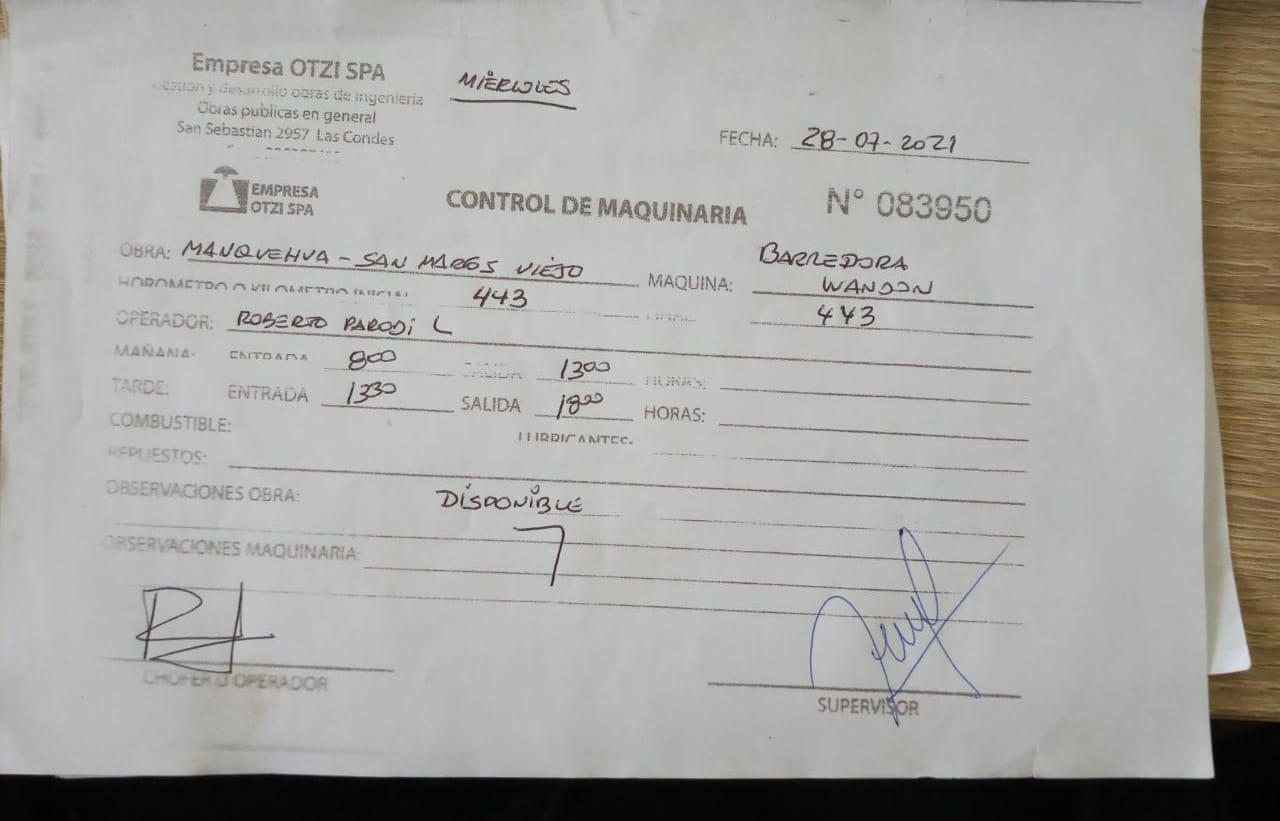 Empresa OTZI SPA
MIÉRCOLES
Gestión y desarrollo obras de ingenieria
Obras publicas en general
San Sebastian 2957 Las Condes
FECHA: 28-07-2021
EMPRESA
OTZI SPA
CONTROL DE MAQUINARIA
N° 083950
OBRA: MANQUEHUA - SAN MARCOS VIEJO MAQUINA: BARREDORA
WANDON
HOROMETRO O KILOMETRO INICIAL 443 443
OPERADOR: ROBERTO PARODI L
MAÑANA: ENTRADA 800 SALIDA 1300 HORAS:
TARDE: ENTRADA 1330 SALIDA 1800 HORAS:
COMBUSTIBLE: LUBRICANTES:
REPUESTOS:
OBSERVACIONES OBRA: DISPONIBLE
OBSERVACIONES MAQUINARIA:
CHOFER U OPERADOR
SUPERVISOR